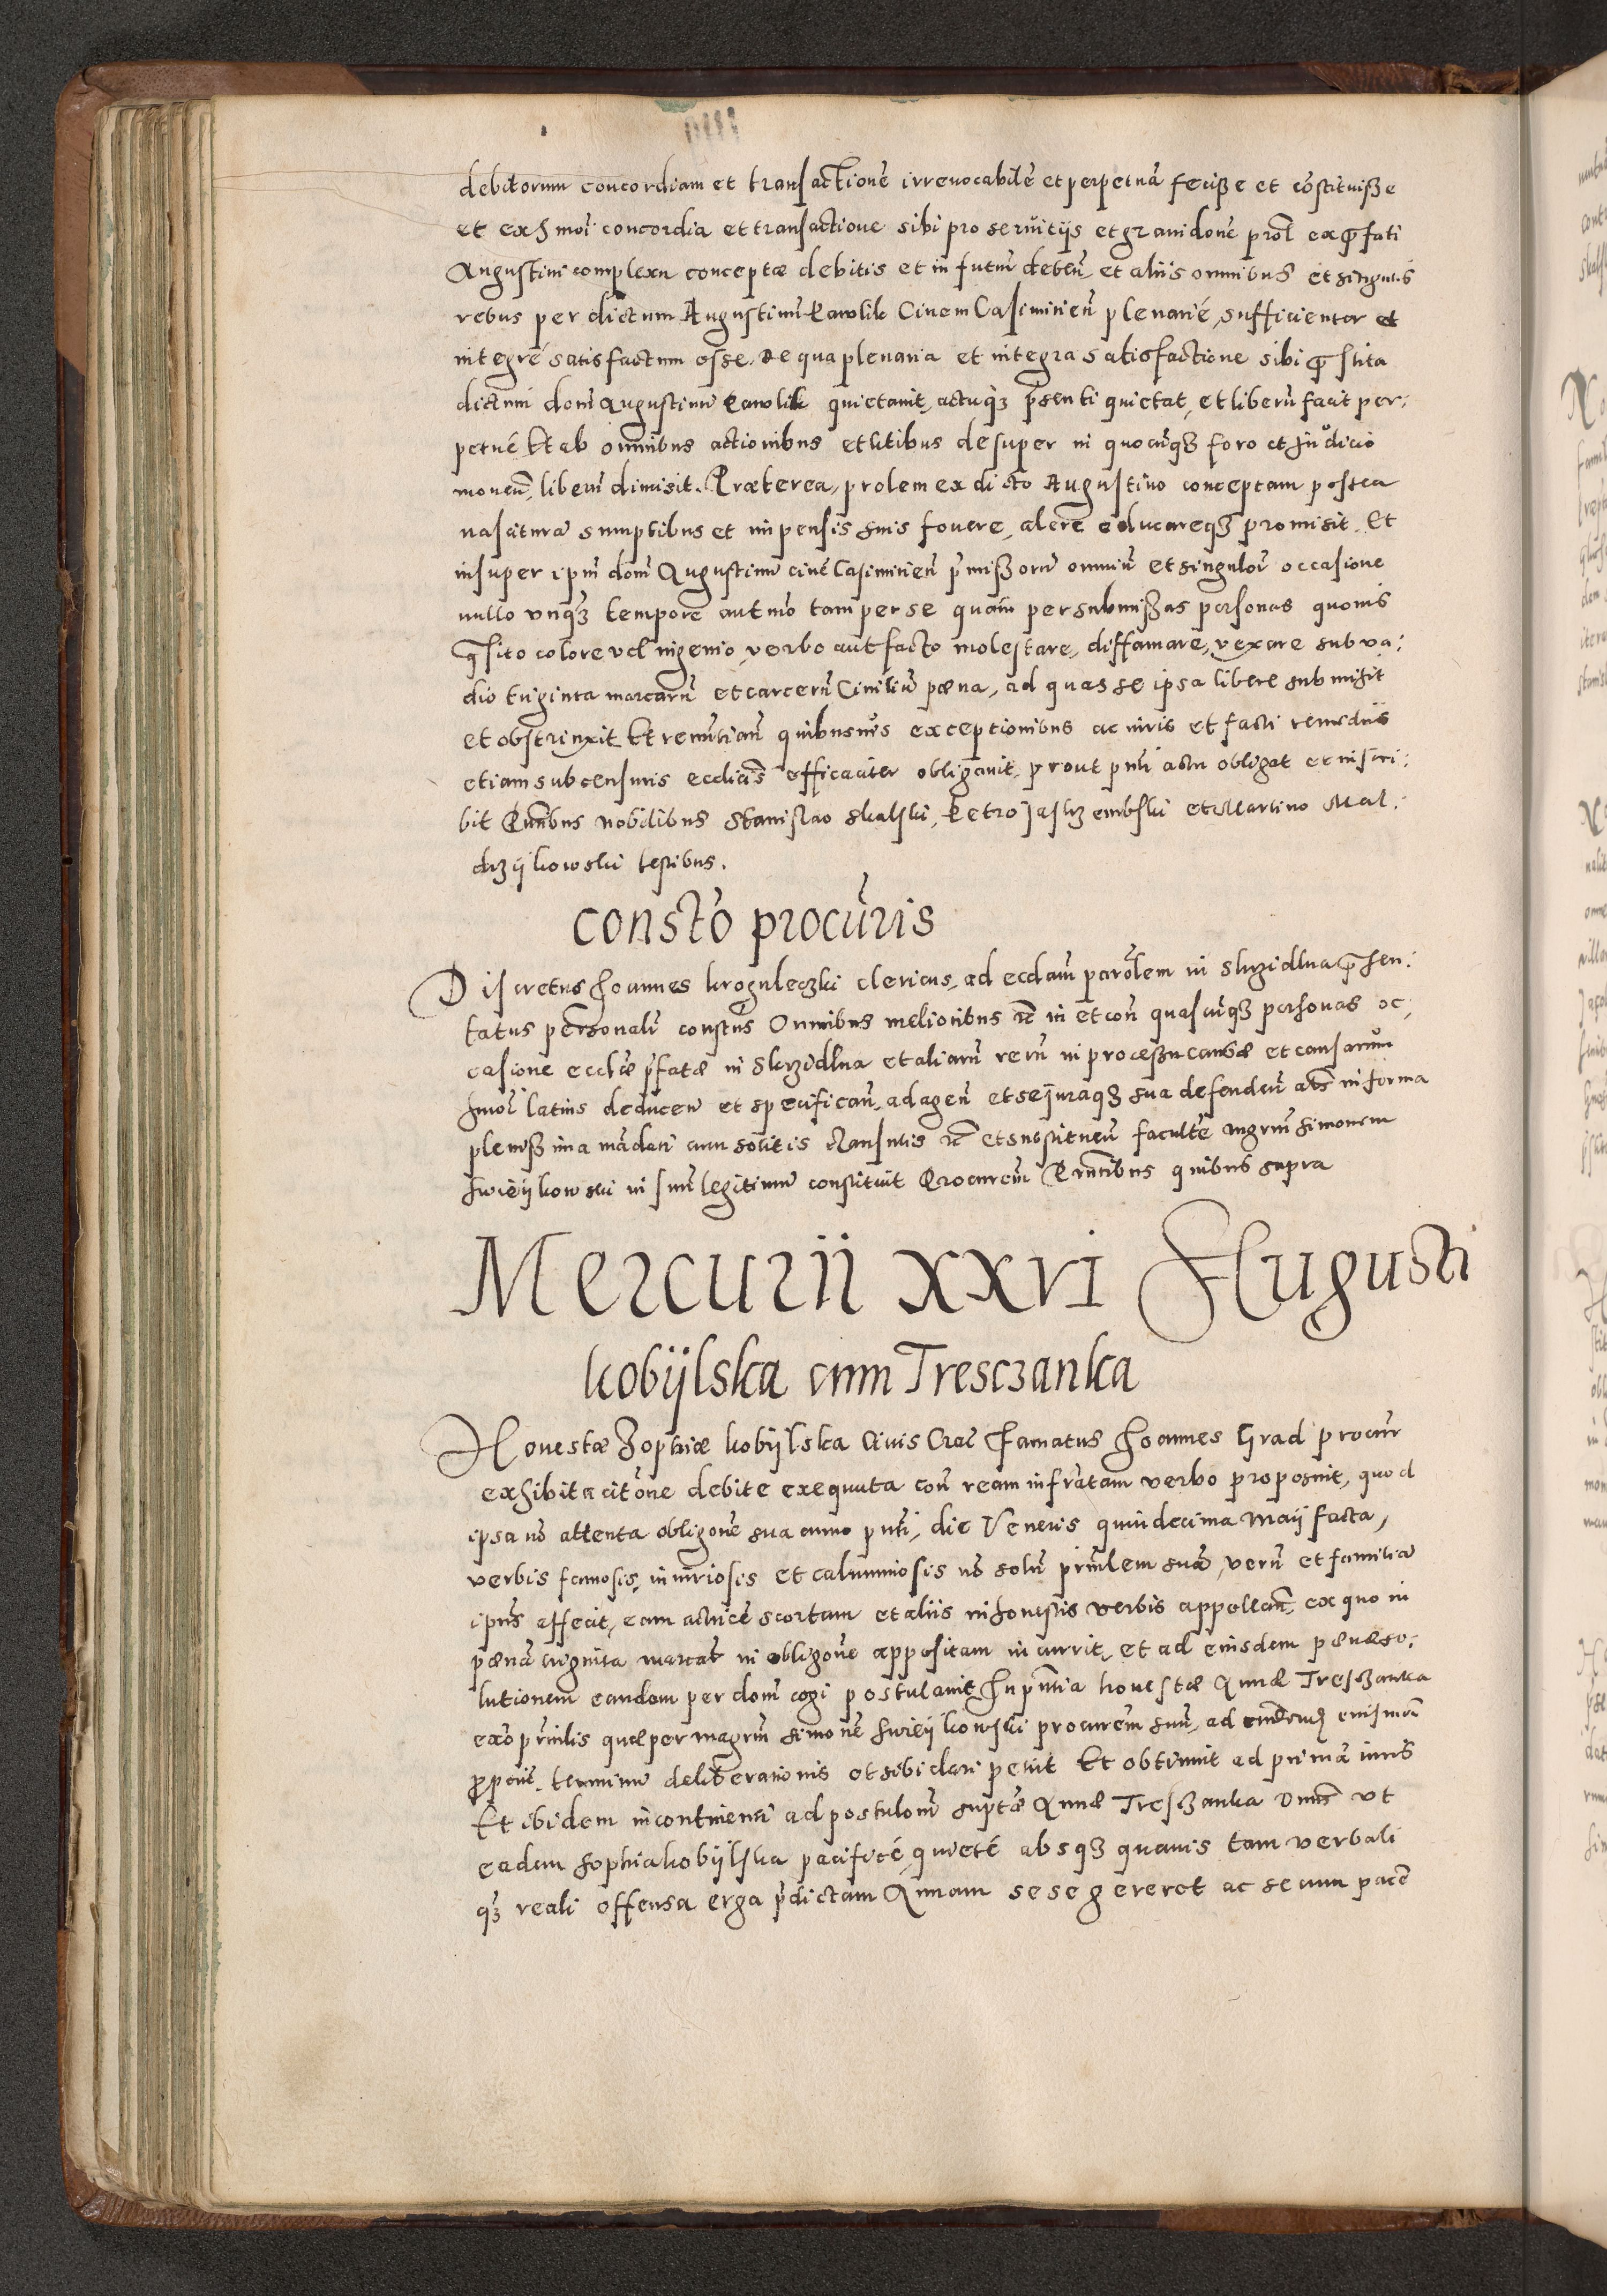 debitorum concordiam et transactionē irrevocabilē et perpetuā fecisse et cōstituisse
et ex hmoi concordia et transactione sibi pro servitijs et gravidone prol ex p̄fati
Augustini complexu conceptæ debitis et in futur̄ deben̄ et alijs omnibus et singulis
rebus per dictum Augustinū Karolik Civem Casimirien̄ plenarié, sufficienter et
integré satisfactum esse. De qua plenaria et integra satisfactione sibi p̄stita
dictum dom̄ Augustinū Karolik quietavit, actuqȝ p̄senti quietat, et liberū facit per:
petué Et ab omnibus actionibus et litibus desuper in quocūqȝ foro et Judicio
moven̄, liberū dimisit. Præterea, prolem ex dicto Augustino conceptam postea
nascitura sumptibus et impensis suis fovere, alere educareqȝ promisit. Et
insuper ipm̄ dom̄ Augustinū civē Casimirien̄ p̄missorū omniū et singulor̄ occasione
nullo unqȝ tempore aut mō tam per se quam per submissas personas quovis
q̄sito colore vel ingenio, verbo aut facto molestare, diffamare, vexare sub va:
dio triginta marcarū et carcerū Civiliū pæna, ad quas se ipsa libere submisit
et obstrinxit Et renūtian̄ quibusvis exceptionibus ac iuris et facti remediis
etiam sub censuris eccliās efficaciter obligavit, prout pn̄ti actu obligat et inscri:
bit Pn̄tibus nobilibus Stanislao Skalski, Petro Jastrzembski et Martino Mal:
drzijkowski testibus.
Constō procūris
Discretus Joannes Kroguleczki clericus, ad ecclām parōlem in Skrzidlna p̄sen:
tatus personalr̄ constūs Omnibus melioribus rc̄ in et con̄ quascūqȝ personas oc:
casione eccliæ p̄fatæ in Skrzidlna et aliarū rerū in processu causæ et causarum
hmoi latius deducen̄ et specifican̄, ad agen̄ et se juraqȝ sua defenden̄ als̄ in forma
plenissima mādati cum solitis clausulis rc̄ et substituen̄ facultē mgrm̄ Simonem
Swieijkowski in suū legitimū constituit Procurem̄ Pn̄tibus quibus supra
Mercurii xxvi Augusti
Kobijlska cum Tresczanka
Honestæ Zophiæ Kobijlska Civis Crac̄ Famatus Joannes Grad procur̄
exhibita citōne debite exequuta con̄ ream infrātam verbo proposuit, quod
ipsa nō attenta obligōne sua anno pn̄ti, die Veneris quindecima Maij facta,
verbis famosis, iniuriosis et calumniosis nō solū prin̄lem suā, verū et familiā
ipius affecit, eam actricē scortam et aliis inhonestis verbis appellan̄, ex quo in
pænā triginta marcar̄ in obligōne appositam incurrit, et ad eiusdem pænæ so:
lutionem eandem per dom̄ cogi postulavit, In pn̄tia honestæ Annæ Tresczanka
exō prin̄lis quæ per magrm̄ Simonē Swieijkowski procurem̄ suū, ad huiusmōi
p̄poñe, terminū deliberationis et sibi dari petiit Et obtinuit ad primā iuris
Et ibidem incontinenti ad postulōnē suptæ Annæ Tresczanka Dnūs ut
eadem Sophia Kobijlska pacificé, quieté absqȝ quavis tam verbali
qȝ reali offensa erga p̄dictam Annam sese gereret ac secum pacē